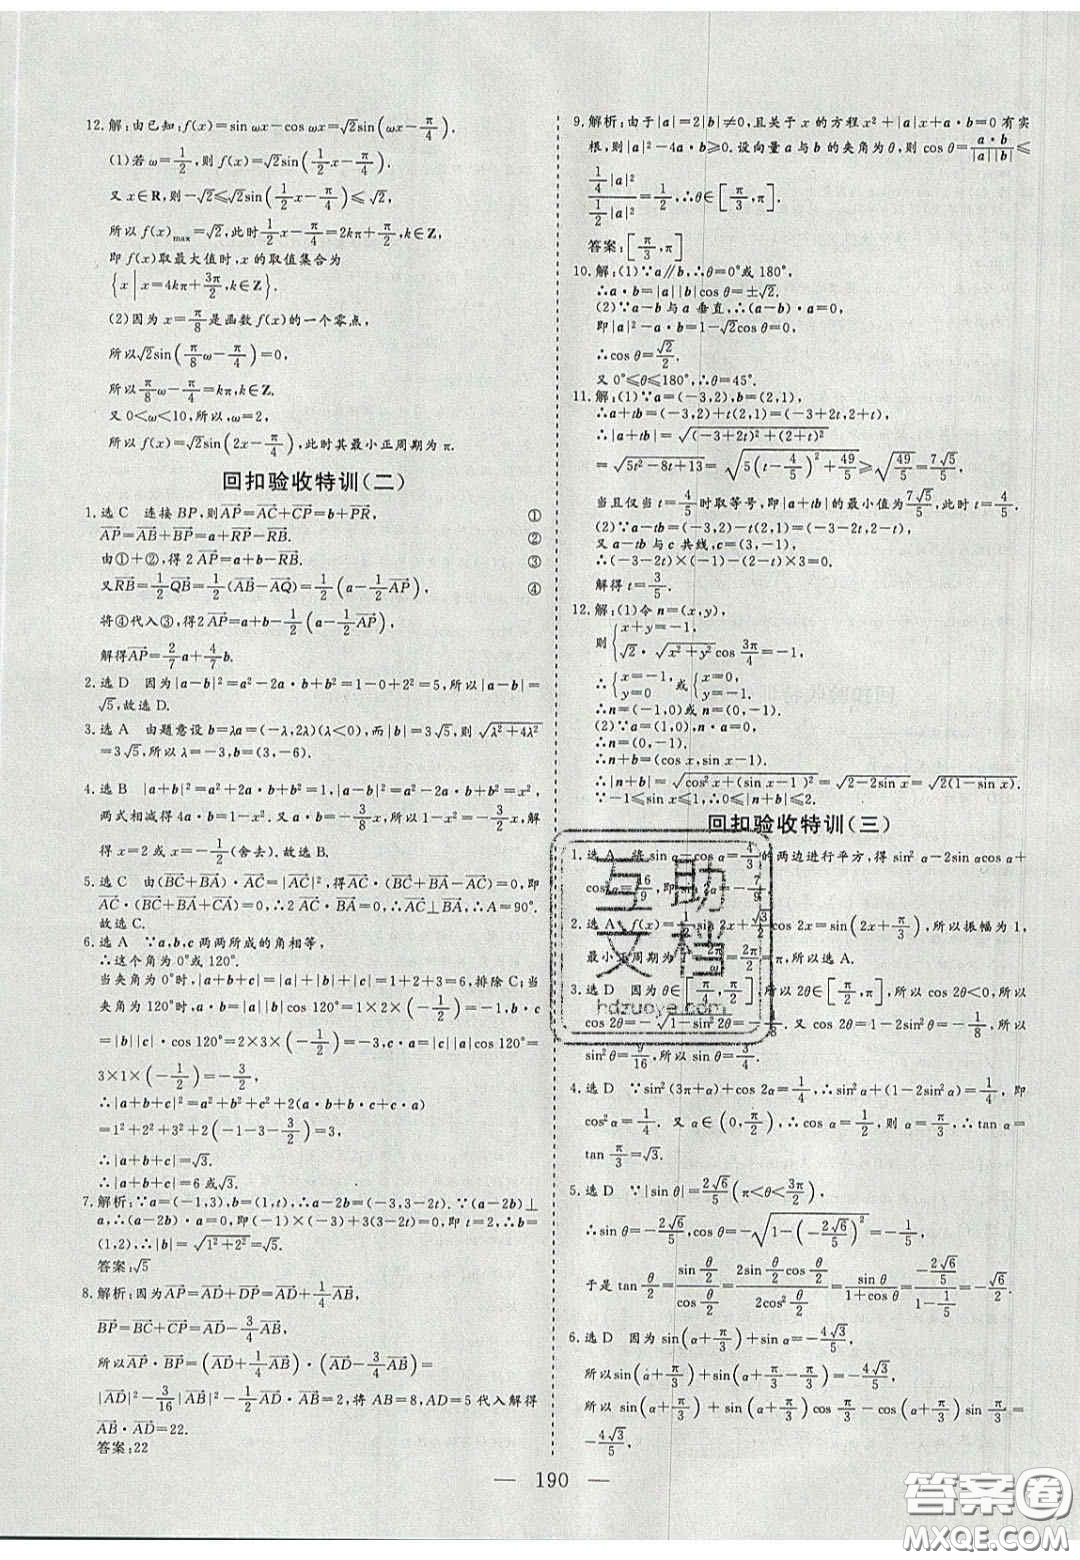 12.解:由已知:f(x)=sin ωx-cos ωx=√2sin(ωx-π/4).
(1)若ω=1/2,则 f(x)=√2sin(1/2x-π/4).
又 x∈R,则-√2≤√2sin(1/2x-π/4)≤√2,
所以 f(x)max=√2,此时1/2x-π/4=2kπ+π/2,k∈Z,
即 f(x)取最大值时,x 的取值集合为
{x|x=4kπ+3π/2,k∈Z}.
(2)因为 x=π/8是函数 f(x)的一个零点,
所以√2sin(π/8ω-π/4)=0,
所以π/8ω-π/4=kπ,k∈Z.
又 0<ω<10,所以,ω=2,
所以 f(x)=√2sin(2x-π/4),此时其最小正周期为 π.
回扣验收特训(二)
1.选 C 连接 BP,则AP=AC+CP=b+PR, ①
AP=AB+BP=a+RP-RB. ②
由①+②,得 2AP=a+b-RB. ③
又RB=1/2QB=1/2(AB-AQ)=1/2(a-1/2AP), ④
将④代入③,得2AP=a+b-1/2(a-1/2AP),
解得AP=2/7a+4/7b.
2.选 D 因为|a-b|²=a²-2a·b+b²=1-0+2²=5,所以|a-b|=
√5,故选 D.
3.选 A 由题意设 b=λa=(-λ,2λ)(λ<0),而|b|=3√5,则 √(λ²+4λ²)
=3√5,所以 λ=-3,b=(3,-6).
4.选 B |a+b|²=a²+2a·b+b²=1,|a-b|²=a²-2a·b+b²=x²,
两式相减得 4a·b=1-x². 又 a·b=-3/2x,所以 1-x²=-3/2x,解
得 x=2 或 x=-1/2(舍去).故选 B.
5.选 C 由(BC+BA)·AC=|AC|²,得AC·(BC+BA-AC)=0,即
AC·(BC+BA+CA)=0,∴2AC·BA=0,∴AC⊥BA,∴A=90°.
故选 C.
6.选 A ∵a,b,c 两两所成的角相等,
∴这个角为 0°或 120°.
当夹角为 0°时,|a+b+c|=|a|+|b|+|c|=1+2+3=6,排除 C;当
夹角为 120°时,a·b=|a||b|cos 120°=1×2×(-1/2)=-1,b·c
=|b||c|·cos 120°=2×3×(-1/2)=-3,a·c=|a||c|cos 120°=
3×1×(-1/2)=-3/2,
∴|a+b+c|²=a²+b²+c²+2(a·b+b·c+a·c)
=1²+2²+3²+2(-1-3-3/2)=3,
∴|a+b+c|=√3.
∴|a+b+c|=6 或√3.
7.解析:∵a=(-1,3),b=(1,t),∴a-2b=(-3,3-2t).∵(a-2b)⊥
a,∴(a-2b)·a=0,即(-1)×(-3)+3(3-2t)=0,即 t=2,∴b=
(1,2),∴|b|=√(1²+2²)=√5.
答案:√5
8.解析:因为AP=AD+DP=AD+1/4AB,
BP=BC+CP=AD-3/4AB,
所以AP·BP=(AD+1/4AB)·(AD-3/4AB)=
|AD|²-3/16|AB|²-1/2AD·AB=2,将 AB=8,AD=5 代入解得
AB·AD=22.
答案:22
9.解析:由于|a|=2|b|≠0,且关于 x 的方程 x²+|a|x+a·b=0 有实
根,则|a|²-4a·b≥0.设向量 a 与 b 的夹角为 θ,则 cos θ=a·b/|a||b|≤
(1/4|a|²)/(1/2|a|²)=1/2,∴θ∈[π/3,π].
答案:[π/3,π]
10.解:(1)∵a∥b,∴θ=0°或 180°,
∴a·b=|a||b|cos θ=±√2.
(2)∵a-b 与 a 垂直,∴(a-b)·a=0,
即|a|²-a·b=1-√2cos θ=0,
∴cos θ=√2/2.
又 0°≤θ≤180°,∴θ=45°.
11.解:(1)∵a=(-3,2),b=(2,1),
∴a+tb=(-3,2)+t(2,1)=(-3+2t,2+t),
∴|a+tb|=√((-3+2t)²+(2+t)²)
=√(5t²-8t+13)=√(5(t-4/5)²+49/5)≥√(49/5)=7√5/5,
当且仅当 t=4/5时取等号,即|a+tb|的最小值为7√5/5,此时 t=4/5.
(2)∵a-tb=(-3,2)-t(2,1)=(-3-2t,2-t),
又 a-tb 与 c 共线,c=(3,-1),
∴(-3-2t)×(-1)-(2-t)×3=0.
解得 t=3/5.
12.解:(1)令 n=(x,y),
则{x+y=-1,
√2·√(x²+y²)cos 3π/4=-1,
∴{x=-1,y=0 或{x=0,y=-1.
∴n=(-1,0)或 n=(0,-1).
(2)∵a=(1,0),n·a=0,
∴n=(0,-1),
∴n+b=(cos x,sin x-1),
∴|n+b|=√(cos²x+(sin x-1)²)=√(2-2sin x)=√(2(1-sin x)).
∵-1≤sin x≤1,∴0≤|n+b|≤2.
回扣验收特训(三)
1.选 A 将 sin α-cos α=4/3的两边进行平方,得 sin²α-2sin αcos α+
cos²α=16/9,即 sin 2α=-7/9.
2.选 A f(x)=1/2sin 2x+√3/2cos 2x=sin(2x+π/3),所以振幅为 1,
最小正周期为 T=2π/ω=2π/2=π,所以选 A.
3.选 D 因为 θ∈[π/4,π/2],所以 2θ∈[π/2,π],所以 cos 2θ<0,所以
cos 2θ=-√(1-sin²2θ)=-1/8. 又 cos 2θ=1-2sin²θ=-1/8,所以
sin²θ=9/16,所以 sin θ=3/4.
4.选 D ∵sin²(3π+α)+cos 2α=1/4,∴sin²α+(1-2sin²α)=1/4,即
cos²α=1/4. 又 α∈(0,π/2),∴cos α=1/2,则 α=π/3,∴tan α=
tan π/3=√3.
5.选 D ∵|sin θ|=2√6/5(π<θ<3π/2),
∴sin θ=-2√6/5,cos θ=-√(1-(-2√6/5)²)=-1/5,
于是 tan θ/2=(sin θ/2)/(cos θ/2)=(2sin θ/2cos θ/2)/(2cos²θ/2)=sin θ/(1+cos θ)=(-2√6/5)/(1-1/5)=-√6/2.
6.选 D 因为 sin(α+π/3)+sin α=-4√3/5,
所以sin(α+π/3)+sin(α+π/3-π/3)=-4√3/5,
所以 sin(α+π/3)+sin(α+π/3)cos π/3-cos(α+π/3)sin π/3=
-4√3/5,
互助
文档
hdzuoye.com
— 190 —
答案圈
MXQE.COM